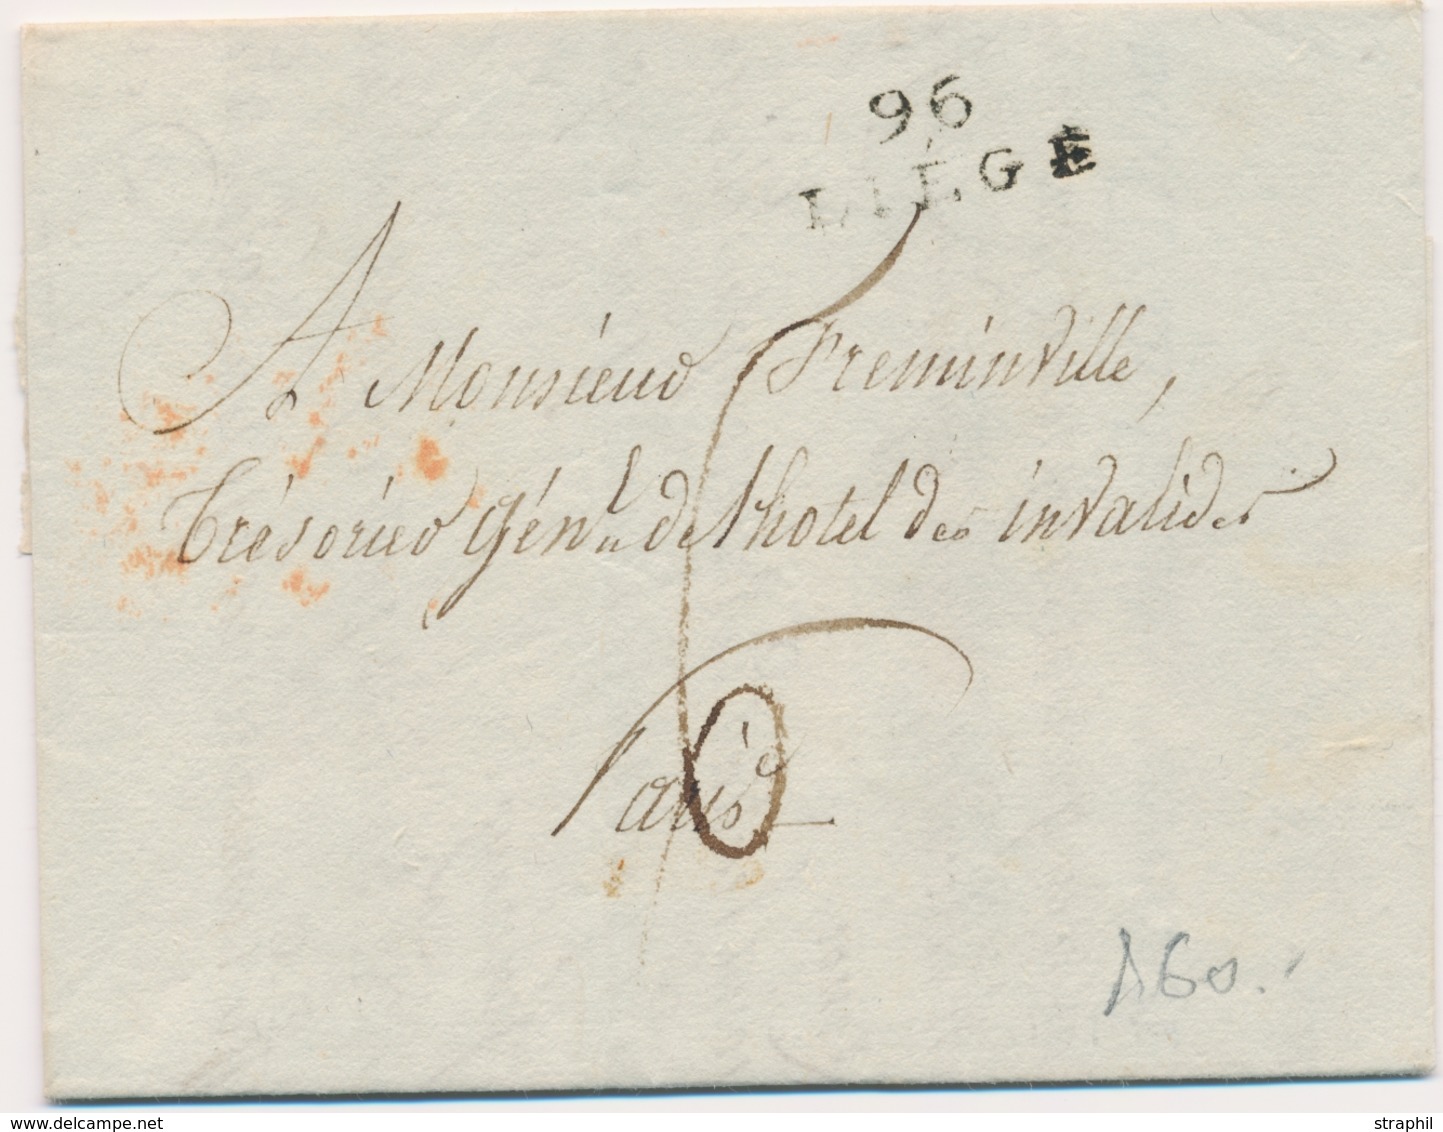 96
LIÉGE
A Monsieur Freminville,
Trésorier Génl de l'hotel des invalides
6
Paris
A60.
www.delcampe.net
straphil